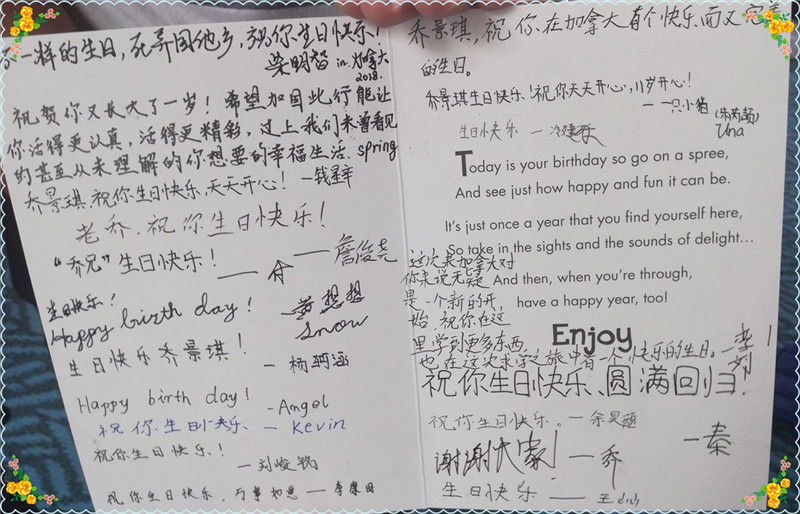 一样的生日,死弄固他乡,祝你生日快乐!
梁明智 in 加拿大
2018.
祝贺你又长大了一岁!希望加国此行能让
你活得更认真,活得更精彩,过上我们未曾看见
的甚至从未理解的你想要的幸福生活. spring
乔景琪,祝你生日快乐,天天开心!—钱
老乔,祝你生日快乐!
—詹俊尧
“乔兄”生日快乐!
生日快乐!
Happy birth day!
黄想想
Snow
生日快乐乔景琪!
—杨
Happy birth day!
-Angel
祝你生日快乐 — Kevin
祝你生日快乐!
—刘峻
祝你生日快乐,万事如意——李
乔景琪,祝你在加拿大有个快乐而又完
的生日。
乔景琪生日快乐!祝你天天开心,11岁开心!
——只小猫
Una
生日快乐
Today is your birthday so go on a spree,
And see just how happy and fun it can be.
It's just once a year that you find yourself here,
So take in the sights and the sounds of delight...
And then, when you're through,
have a happy year, too!
这次来加拿大对
你来说无疑
是一个新的开
始.祝你在这
里学到更多东西
Enjoy
也在这次求学之旅中有一个快乐的生日。
祝你生日快乐、圆满回归.
祝你生日快乐。—余
—秦
谢谢大家!—乔
生日快乐 ——王